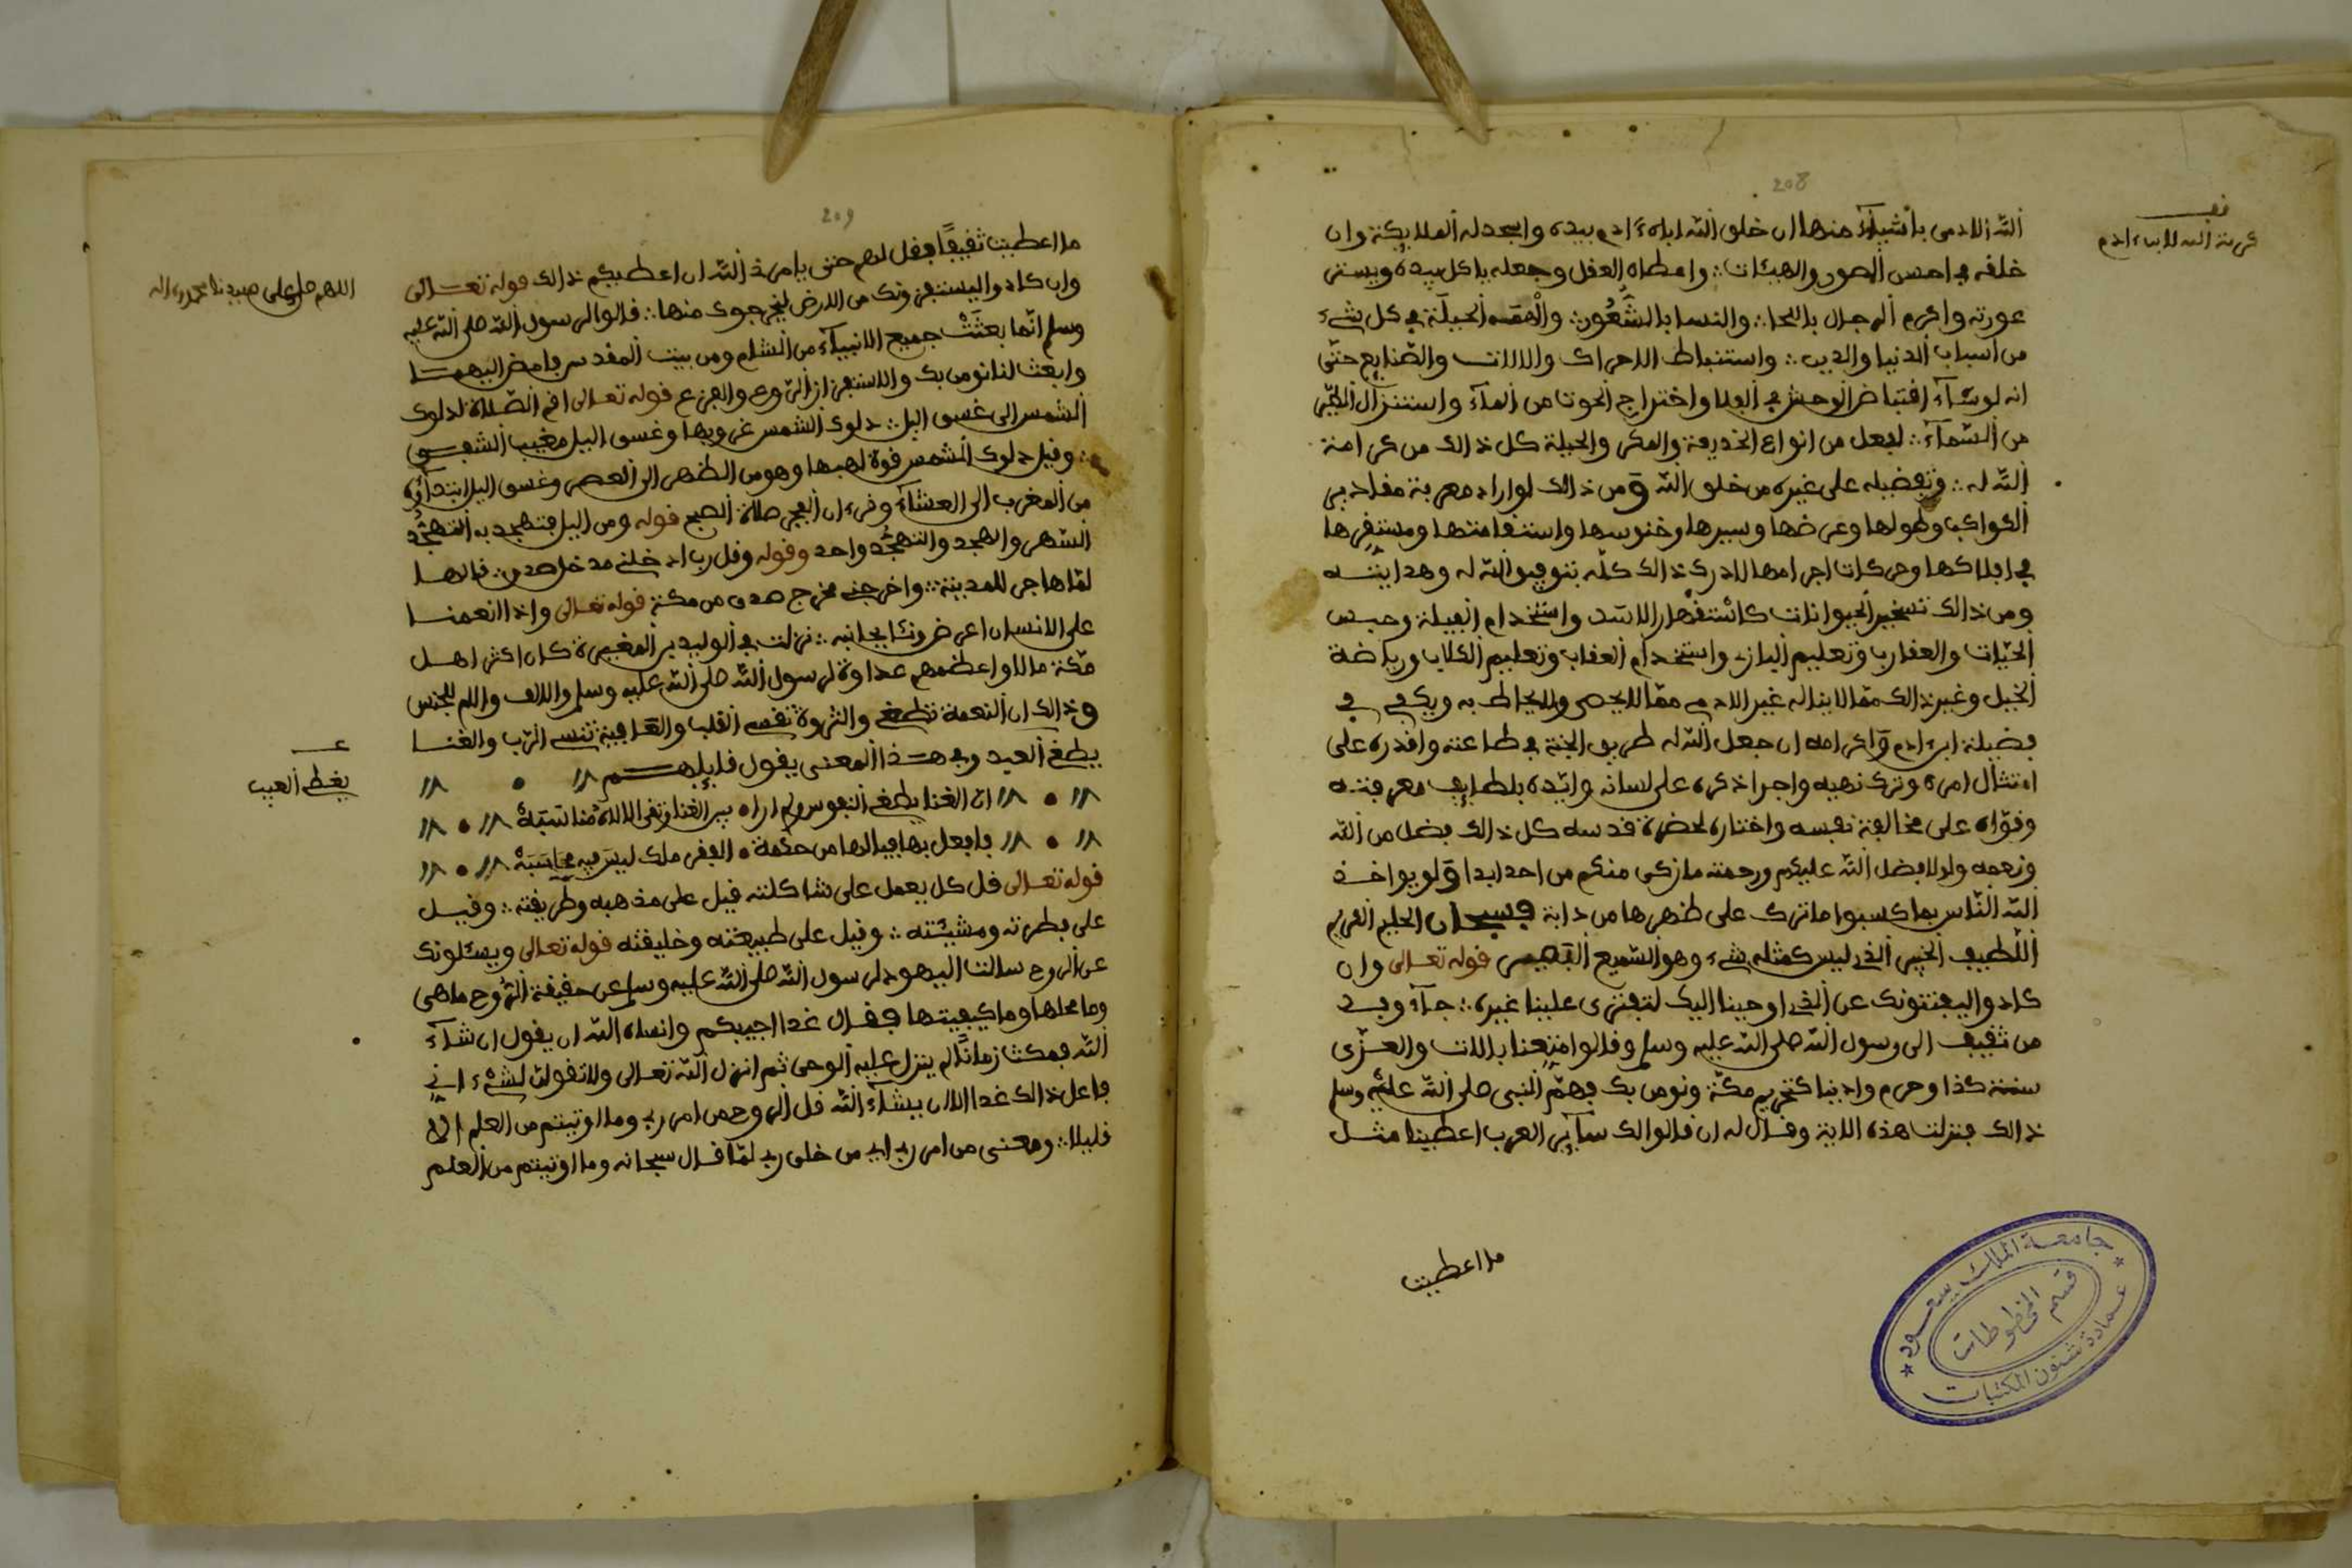 208
الله الادمى باشياء منها ان خلق الله اباه ادم بيده واسجد له الملايكة وان
خلقه في احسن الصور والهيئات ؞ واعطاه العقل وجعله ياكل بيده ويستر
عورته واكرم الرجال باللحا ؞ والنسا بالشعور ؞ والهمه الحيلة في كل شيء
من أسباب الدنيا والدين ؞ واستنباط الاحراك والالات والصنايع حتى
انه لو شاء اقتناص الوحش في الفلا واخراج الحوت من الماء واستنزال الطير
من السماء ؞ لفعل من انواع الخديعة والمكر والحيلة كل ذالك من كرامة
الله له ؞ وتفضيله على غيره من خلق الله ومن ذالك لو اراد معرفة مقادير
الكواكب وطولها وعرضها وسيرها وخنوسها واستقامتها ومستقرها
في افلاكها وحركات اجرامها لادرك ذالك كله بتوفيق الله له وهدايته
ومن ذالك تسخير الحيوانات واستخدام الفيلة وحبس
الحيات والعقارب وتعليم البازي واستخدام العقاب وتعليم الكلاب ورياضة
الخيل وغير ذالك مما لا يناله غير الادمي مما لا يحصى ولا يحاط به ويكفي في
فضيلة ابن ادم واكرامه ان جعل الله له طريق الجنة في طاعته واقدره على
امتثال امره وترك نهيه واجرا ذكره على لسانه وايده بلطايف معرفته
وقواه على مخالفة نفسه واختاره لحضرة قدسه كل ذالك بفضل من الله
ونعمه ولولا فضل الله عليكم ورحمته ما زكى منكم من احد ابدا ولو يواخذ
الله الناس بما كسبوا ما ترك على ظهرها من دابة فسبحان الحليم الكريم
اللطيف الخبير الذي ليس كمثله شيء وهو السميع البصير قوله تعالى وان
كادوا ليفتنونك عن الذي اوحينا اليك لتفتري علينا غيره ؞ جاء وفد
من ثقيف الى رسول الله صلى الله عليه وسلم وقالوا متعنا باللات والعزى
سنة كذا وحرم وادينا كتحريم مكة ونومن بك فهم النبي صلى الله عليه وسلم
ذالك فنزلت هذه الاية وقال له ان قالوا لك ساير العرب اعطينا مثل
ما اعطيت
جامعة الملك سعود
قسم المخطوطات
عمادة شئون المكتبات
209
ما اعطيت ثقيفا فقل لهم حتى يامرني الله ان اعطيكم ذالك قوله تعالى
وان كادوا ليستفزونك من الارض ليخرجوك منها ؞ قالوا لرسول الله صلى الله عليه
وسلم انما بعثت جميع الانبياء من الشام ومن بيت المقدس فامض اليهما
وابعث لنا نومن بك والاستفزاز الروع والفزع قوله تعالى اقم الصلاة لدلوك
الشمس الى غسق اليل ؞ دلوك الشمس غروبها وغسق اليل مغيب الشفق
؞ وقيل دلوك الشمس قوة لهبها وهو من الظهر الى العصر وغسق اليل ابتداؤه
من المغرب الى العشاء وقرءان الفجر صلاة الصبح قوله ومن اليل فتهجد به التهجد
السهر والهجد والتهجد واحد وقوله وقل رب ادخلني مدخل صدق ؞ قالها
لما هاجر للمدينة ؞ واخرجني مخرج صدق من مكة قوله تعالى واذا انعمنا
على الانسان اعرض ونئا بجانبه ؞ نزلت في الوليد بن المغيرة كان اكثر اهل
مكة مالا واعظمهم عداوة لرسول الله صلى الله عليه وسلم والالف واللام للجنس
وذالك ان النعمة تطغي والثروة تقسي القلب والعافية تنسي الرب والغنا
يطغي العبد وفي هذا المعنى يقول قايلهم
ان الغنا يطغي النفوس ولم اراه بين الغنا وتقى الاله مناسبة
فافعل بها فيالها من حكمة الفقر ملك ليس فيه محاسبة
قوله تعالى قل كل يعمل على شاكلته قيل على مذهبه وطريقته ؞ وقيل
على فطرته ومشيئته ؞ وقيل على طبيعته وخليقته قوله تعالى ويسئلونك
عن الروح سالت اليهود رسول الله صلى الله عليه وسلم عن حقيقة الروح ما هي
وما محلها وما كيفيتها فقال غدا اجيبكم وانساه الله ان يقول ان شاء
الله فمكث زمانا لم ينزل عليه الوحي ثم انزل الله تعالى ولا تقولن لشيء اني
فاعل ذالك غدا الا ان يشاء الله قل الروح من امر ربي وما اوتيتم من العلم الا
قليلا ؞ ومعنى من امر ربي اي من خلق ربي لما قال سبحانه وما اوتيتم من العلم
اللهم صل على سيدنا محمد واله
يغطي العيب